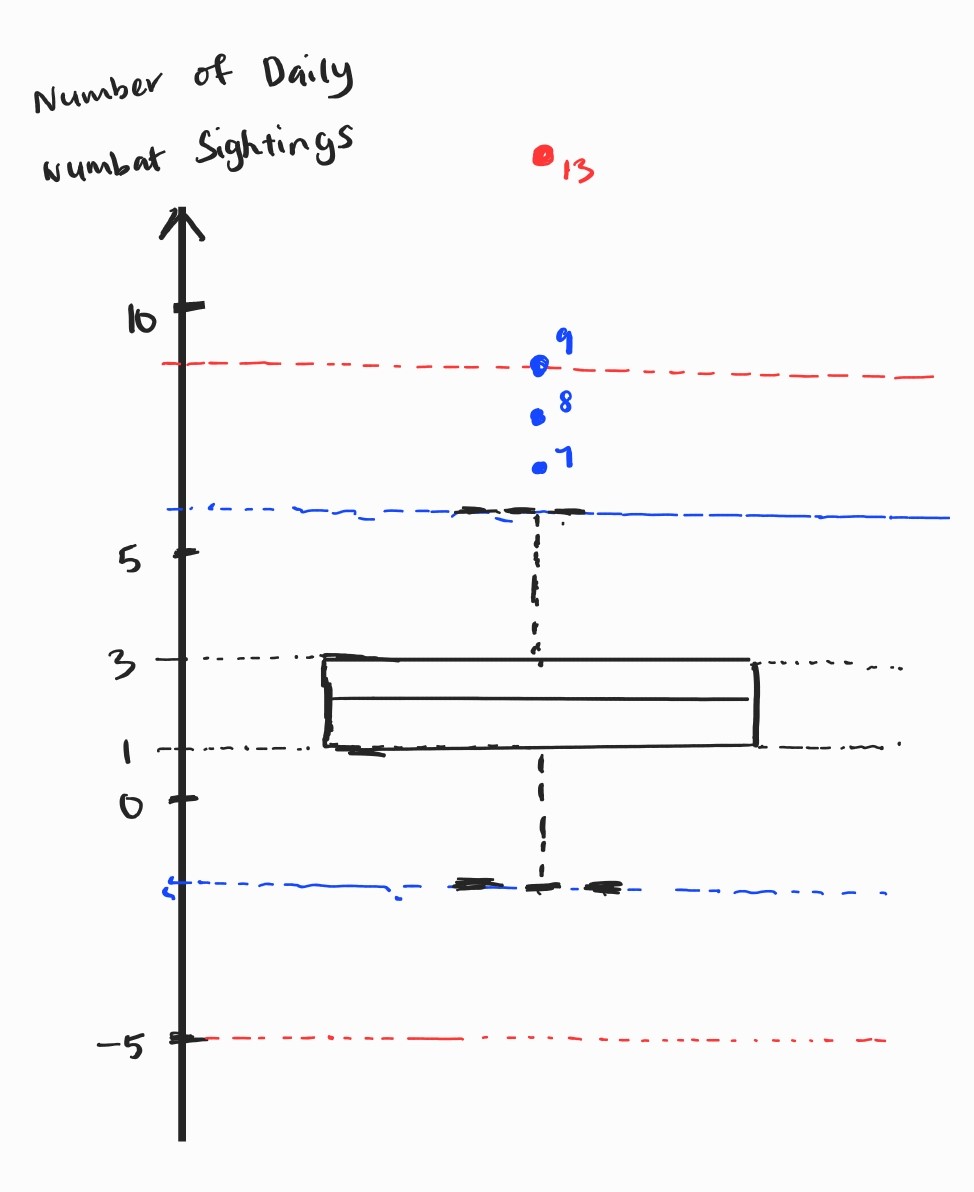 Number of Daily
Numbat Sightings
13
10
9
8
7
5
3
1
0
-5